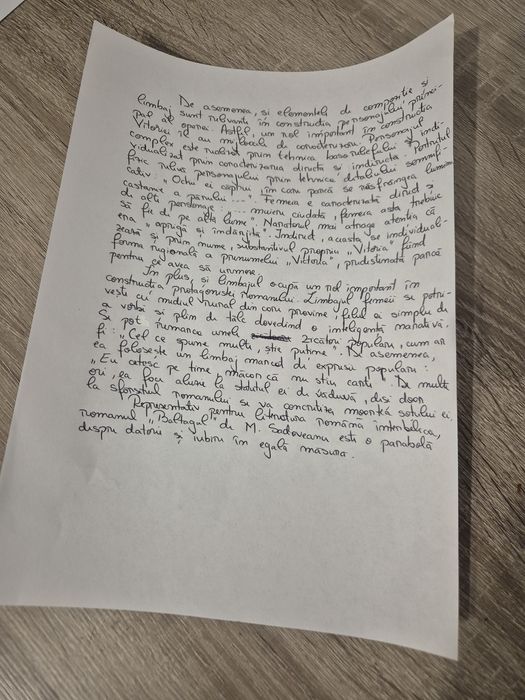 De asemenea, și elementele de compoziție și
limbaj sunt relevante în construcția personajului princi-
pal al operei. Astfel, un rol important în construcția
Vitoriei îl au mijloacele de caracterizare. Personajul
complex este realizat prin tehnica basoreliefului, indi-
vidualizat prin caracterizarea directă și indirectă. Portretul
fizic relief personajului prin tehnica detaliului semnifi-
cativ: „Ochii ei căprui în care parcă se răsfrângea lumina
castanie a părului ...". Femeia e caracterizată direct și
de alte personaje: „... muiere ciudată, femeia asta trebuie
să fie de pe altă lume". Naratorul mai atrage atenția că
era „aprigă și îndârjită". Indirect, aceasta se individuali-
zează și prin nume, substantivul propriu „Vitoria" fiind
forma regională a prenumelui „Victoria", predestinată parcă
pentru ce avea să urmeze.
În plus, și limbajul ocupă un rol important în
construcția protagonistei romanului. Limbajul femeii se potri-
vește cu mediul rural din care provine, felul a simplu de
a vorbi și plin de tâlc dovedind o inteligență nativă.
Se pot remarca unele zicători populare, cum ar
fi: „Cel ce spune multe, știe puține". De asemenea,
ea folosește un limbaj marcat de expresii populare:
„Eu cetesc pe tine, măcar că nu știu carte". De multe
ori, ea face aluzie la statutul ei de văduvă, deși doar
la sfârșitul romanului se va concretiza moartea soțului ei.
Reprezentativ pentru literatura română interbelică,
romanul „Baltagul" de M. Sadoveanu este o parabolă
despre datorie și iubire în egală măsură.